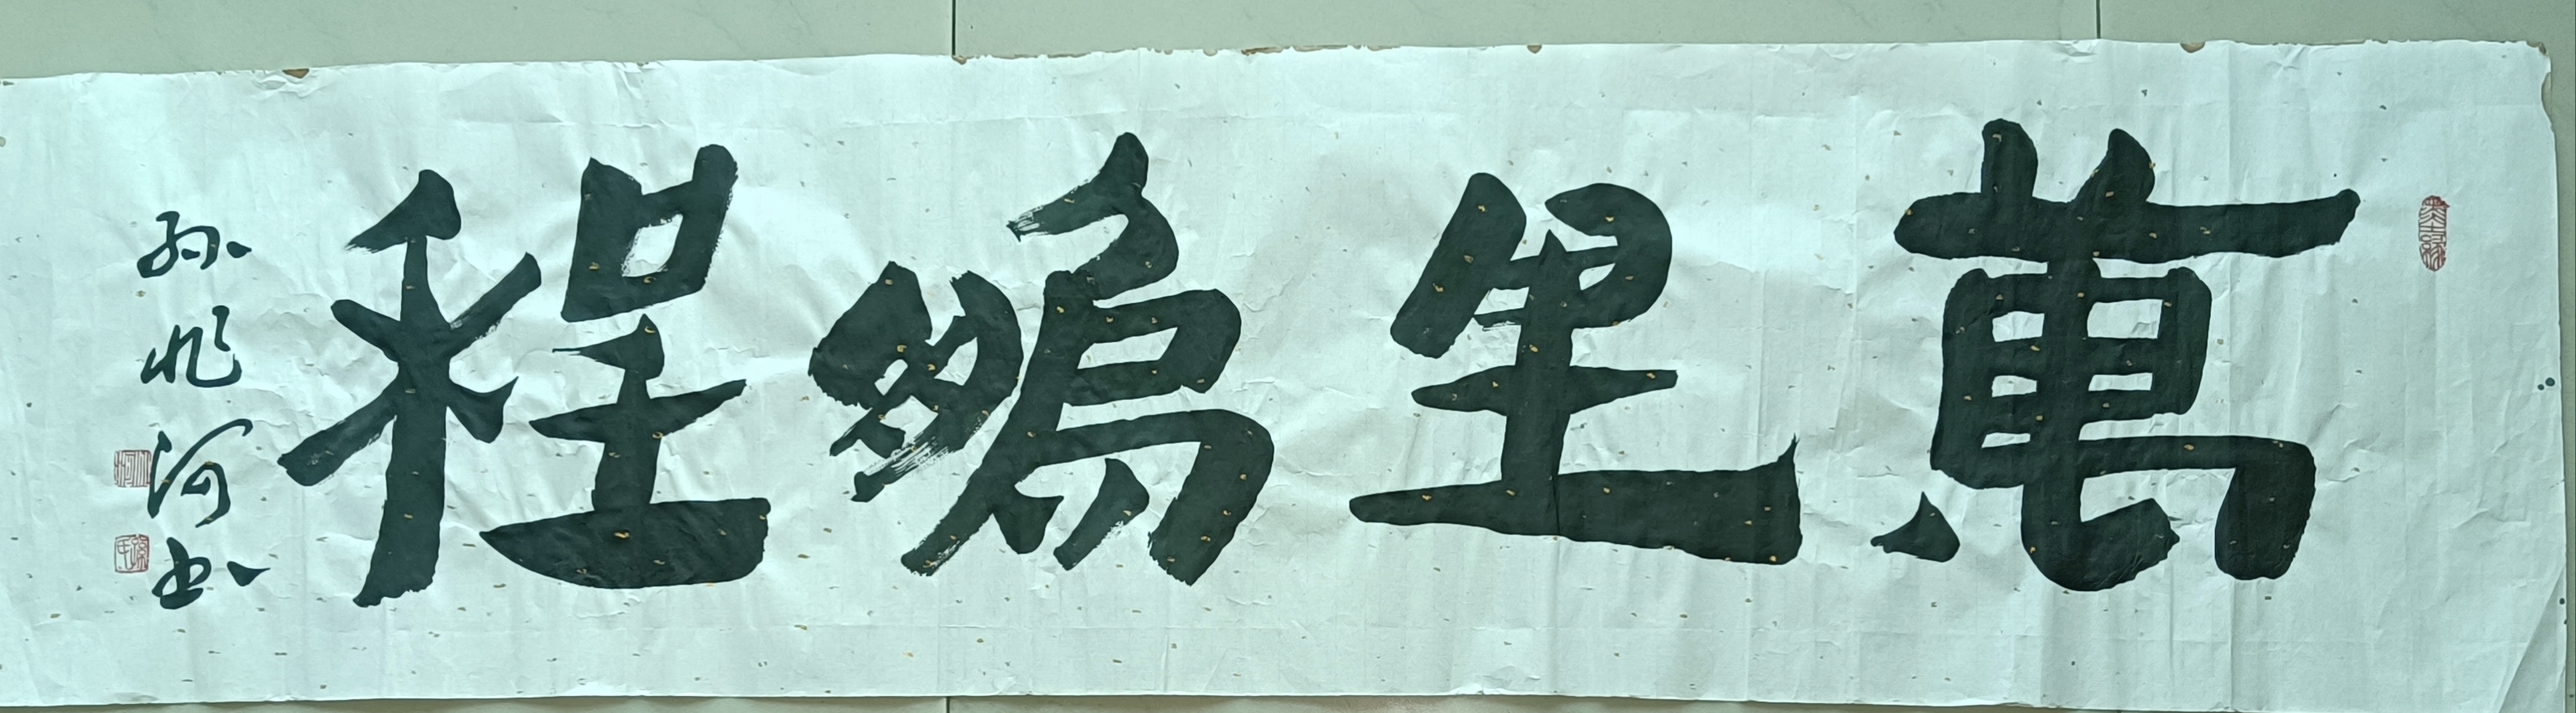 萬里鵬程
孫兆河书